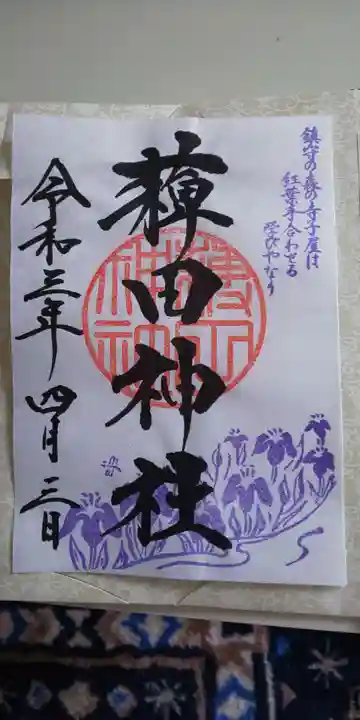 鎮守の森の寺子屋は
紅葉手合わせる
学びやなり
薭田神社
令和三年 四月三日